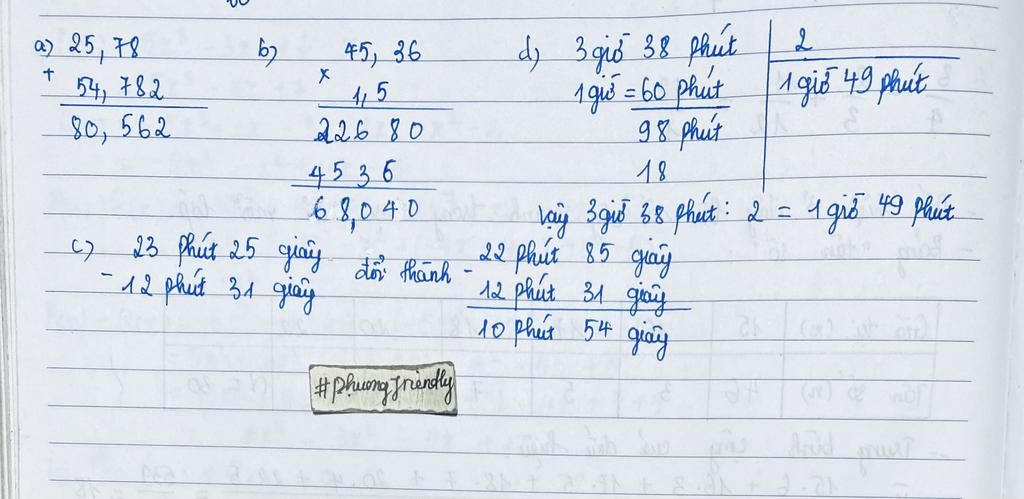 a) 25,78
+
54,782
80,562
b) 45,36
x
1,5
22680
4536
68,040
d) 3 giờ 38 phút | 2
1 giờ = 60 phút | 1 giờ 49 phút
98 phút
18
Vậy 3 giờ 38 phút : 2 = 1 giờ 49 phút
c) 23 phút 25 giây đổi thành - 22 phút 85 giây
- 12 phút 31 giây
12 phút 31 giây
10 phút 54 giây
#phuongfriendly